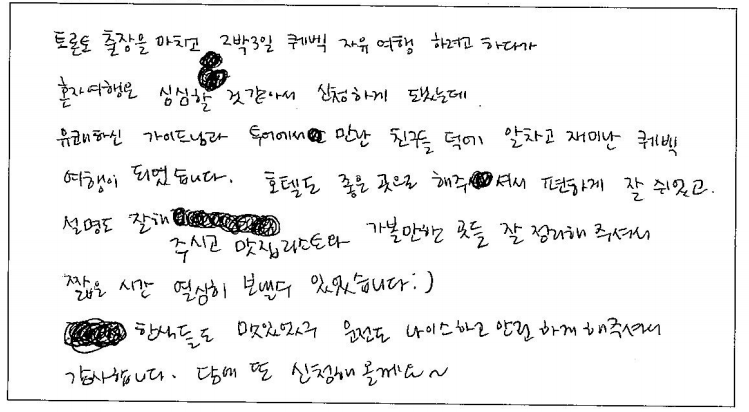 토론토 출장을 마치고 2박3일 퀘벡 자유 여행 하려고 하다가
혼자여행은 심심할 것같아서 신청하게 됐는데
유쾌하신 가이드님과 투어에서 만난 친구들 덕에 알차고 재미난 퀘벡
여행이 되었습니다. 호텔도 좋은 곳으로 해주셔서 편하게 잘 쉬었고
설명도 잘해
주시고 맛집리스트와 가볼만한 곳들 잘 정리해 주셔서
짧은 시간 열심히 보낼수 있었습니다:)
한식들도 맛있었구 운전도 나이스하고 안전하게 해주셔서
감사합니다. 담에 또 신청해 올게요~